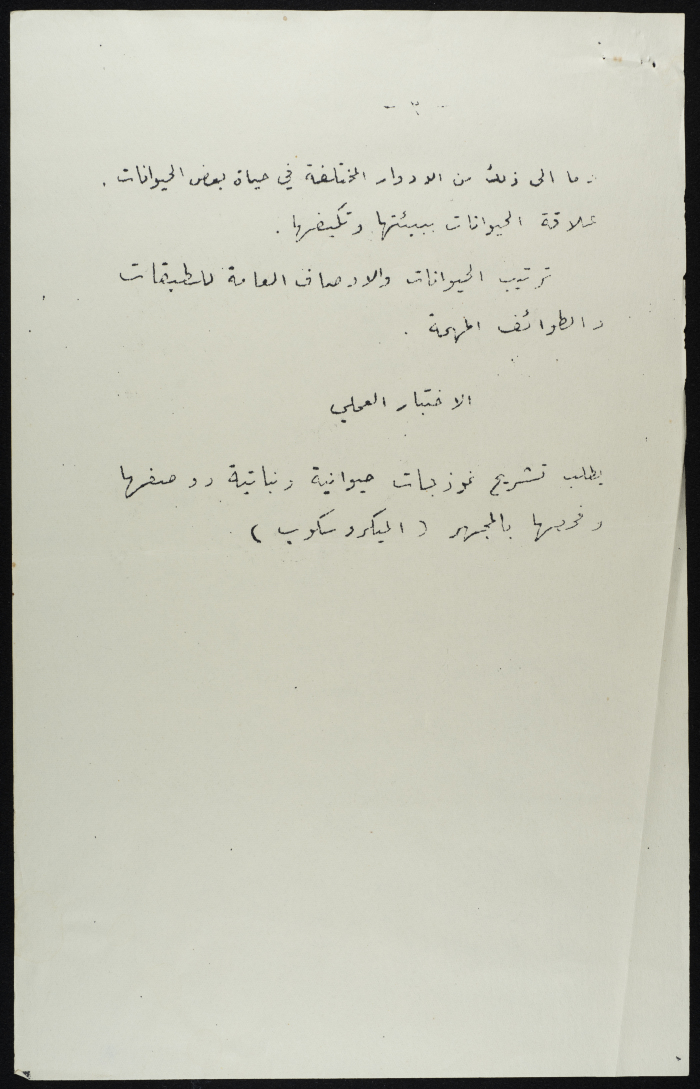 - ٣ -
وما الى ذلك من الادوار المختلفة في حياة بعض الحيوانات .
علاقة الحيوانات ببيئتها وتكيفها .
ترتيب الحيوانات والاوصاف العامة للطبقات
والطوائف المهمة .
الاختبار العملي
يطلب تشريح نموذجات حيوانية ونباتية ووصفها
وفحصها بالمجهر ( الميكروسكوب )